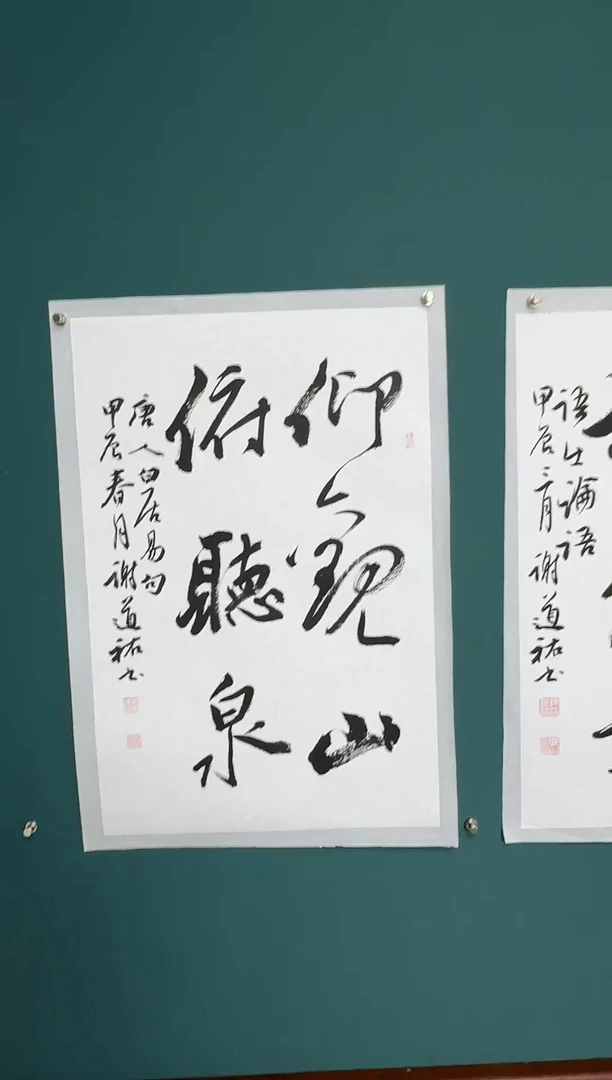 仰觀山
俯聽泉
唐人白居易句
甲辰春月謝道祐书
语出論語
甲辰三月谢道祐书